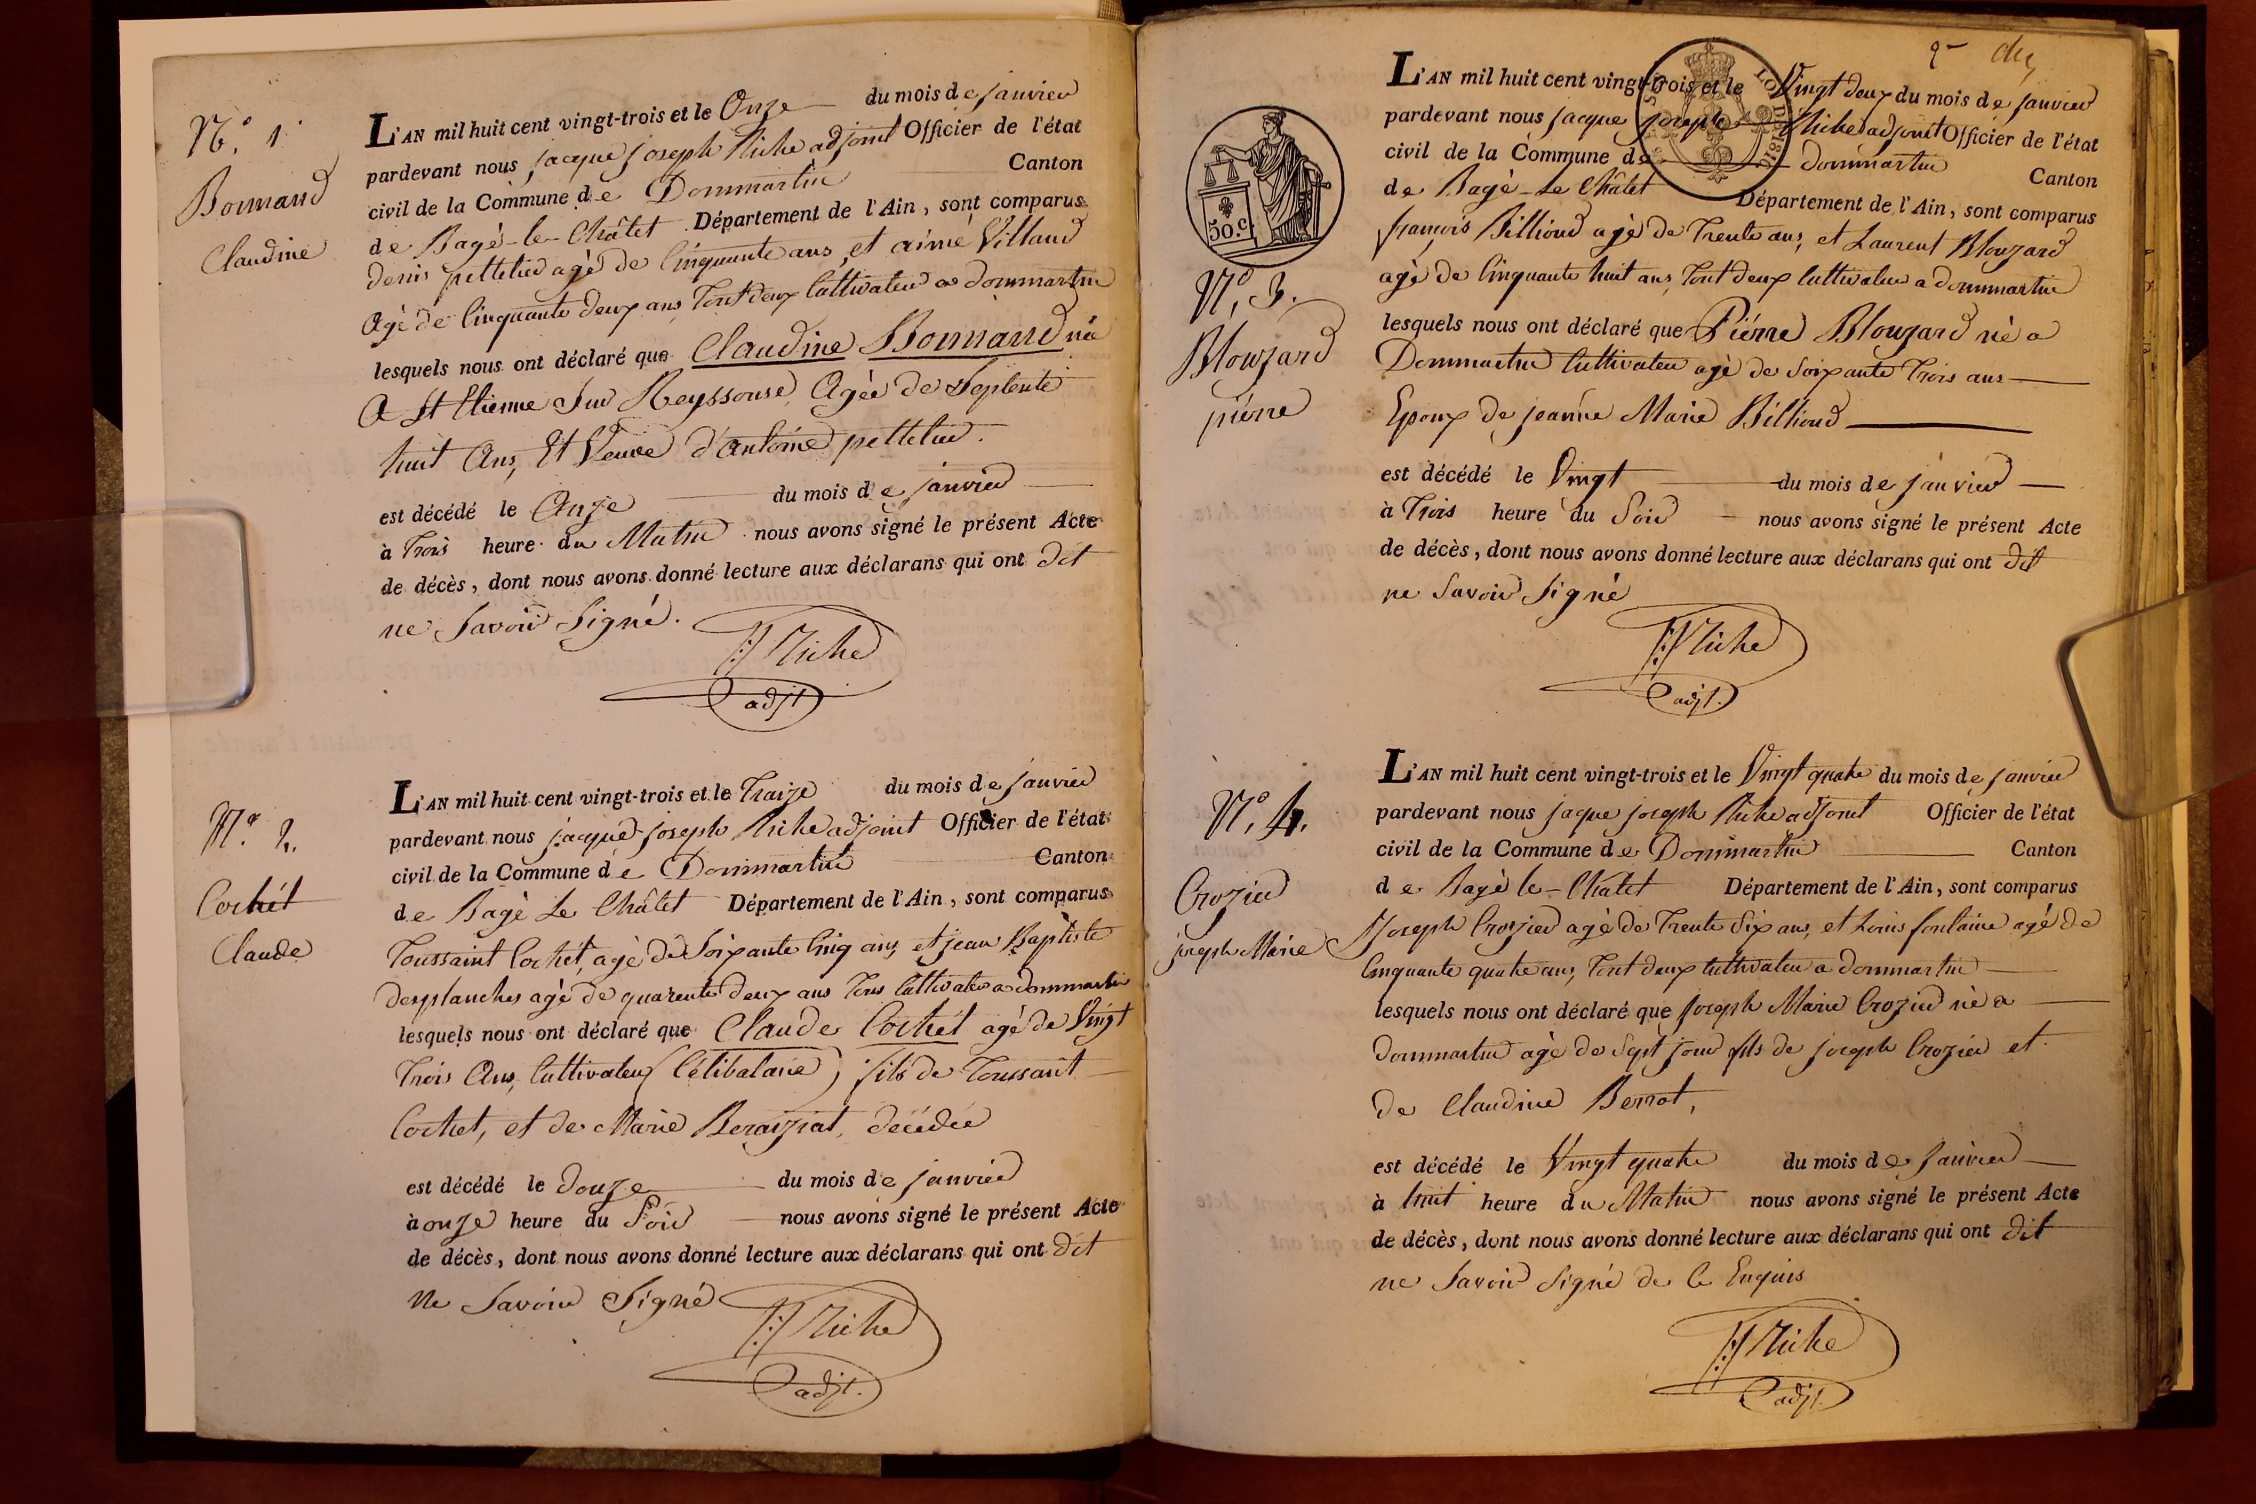 N.° 1
Bonnand
Claudine
L'AN mil huit cent vingt-trois et le Onze du mois de janvier
pardevant nous jacque joseph Riche adjoint Officier de l'état
civil de la Commune de Dommartin Canton
de Bagé-le-Châtet Département de l'Ain, sont comparus
denis pelletier agé de Cinquante ans, et aimé Villaud
Agé de Cinquante deux ans, Tout deux Cultivateur a dommartin
lesquels nous ont déclaré que Claudine Bonnand née
A St Etienne Sur Reyssouse, Agée de Septente
huit Ans, Et Veuve d'antoine pelletier.
est décédé le Onze du mois de janvier
à Trois heure du Matin nous avons signé le présent Acte
de décès, dont nous avons donné lecture aux déclarans qui ont dit
ne Savoir Signé.
Riche
adjt
N.° 2.
Cochet
Claude
L'AN mil huit cent vingt-trois et le Traize du mois de janvier
pardevant nous jacque joseph Riche adjoint Officier de l'état
civil de la Commune de Dommartin Canton
de Bagé Le Châtet Département de l'Ain, sont comparus
Toussaint Cochet, agé de Soixante Cinq ans, et jean Baptiste
desplanches agé de quarente deux ans Tous Cultivateur a dommartin
lesquels nous ont déclaré que Claude Cochet agé de Vingt
Trois Ans, Cultivateur (Célibataire) fils de Toussaint
Cochet, et de Marie Beraiziat, décédée
est décédé le douze du mois de janvier
à onze heure du Soir nous avons signé le présent Acte
de décès, dont nous avons donné lecture aux déclarans qui ont dit
Ne Savoir Signé
Riche
adjt.
50.C
N.° 3.
Blouzard
piérre
L'AN mil huit cent vingt-trois et le Vingt deux du mois de janvier
pardevant nous jacque joseph Riche adjoint Officier de l'état
civil de la Commune de dommartin Canton
de Bagé-Le Châtet Département de l'Ain, sont comparus
françois Billioud agé de Trente ans, et Laurent Blouzard
agé de Cinquante huit ans, Tout deux Cultivateur a dommartin
lesquels nous ont déclaré que Piérre Blouzard né a
Dommartin Cultivateur agé de Soixante Trois ans
Epoux de jeanne Marie Billioud
est décédé le Vingt du mois de janvier
à Trois heure du Soir nous avons signé le présent Acte
de décès, dont nous avons donné lecture aux déclarans qui ont dit
ne Savoir Signé
Riche
adjt.
N.° 4.
Crozier
joseph Marie
L'AN mil huit cent vingt-trois et le Vingt quatre du mois de janvier
pardevant nous jaque joseph Riche adjoint Officier de l'état
civil de la Commune de Dommartin Canton
de Bagé le-Châtet Département de l'Ain, sont comparus
Joseph Crozier agé de Trente Six ans, et Louis fontaine agé de
Cinquante quatre ans, Tout deux Cultivateur a dommartin
lesquels nous ont déclaré que joseph Marie Crozier né a
dommartin agé de Sept jour fils de joseph Crozier et
de Claudine Berrot,
est décédé le Vingt quatre du mois de janvier
à huit heure du Matin nous avons signé le présent Acte
de décès, dont nous avons donné lecture aux déclarans qui ont dit
ne Savoir Signé de Ce Enquis
Riche
adjt.